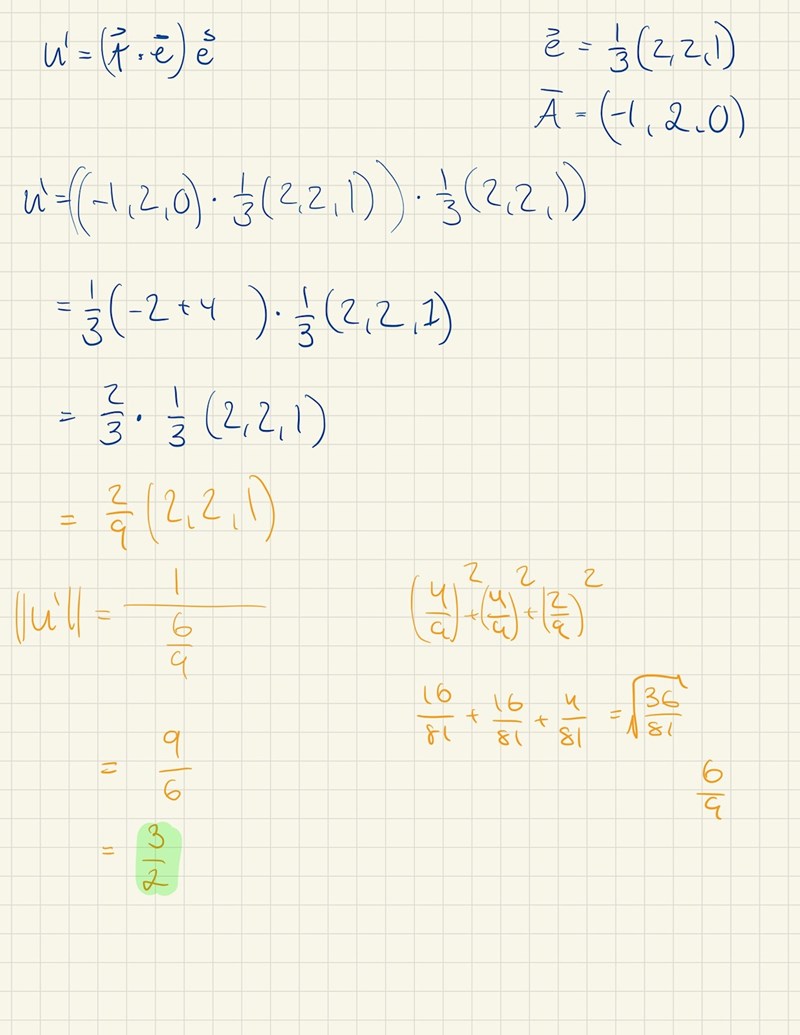 u' = (A⃗ · e⃗) e⃗
e⃗ = 1/3 (2, 2, 1)
A̅ = (-1, 2, 0)
u' = ((-1, 2, 0) · 1/3 (2, 2, 1)) · 1/3 (2, 2, 1)
= 1/3 (-2 + 4 ) · 1/3 (2, 2, 1)
= 2/3 · 1/3 (2, 2, 1)
= 2/9 (2, 2, 1)
||u'|| = 1/(6/9)
= 9/6
= 3/2
(4/9)² + (4/9)² + (2/9)²
16/81 + 16/81 + 4/81 = √(36/81)
6/9